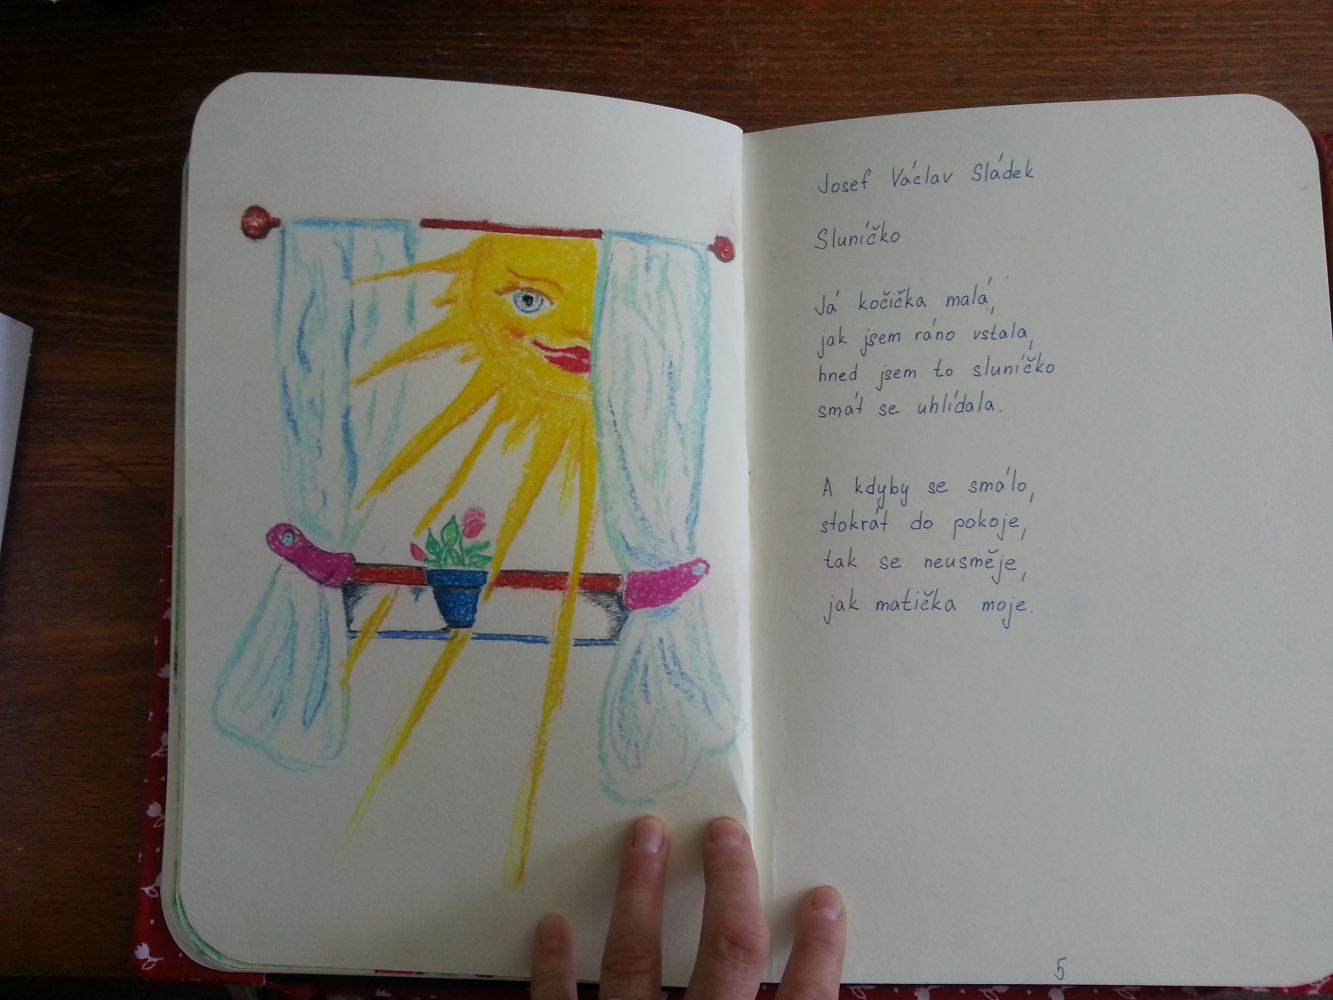 Josef Václav Sládek
Sluníčko
Já kočička malá,
jak jsem ráno vstala,
hned jsem to sluníčko
smát se uhlídala.
A kdyby se smálo,
stokrát do pokoje,
tak se neusměje,
jak matička moje.
5